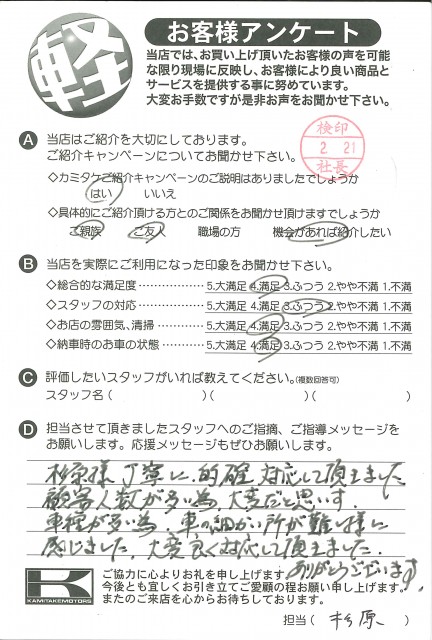 軽
お客様アンケート
当店では、お買い上げ頂いたお客様の声を可能
な限り現場に反映し、お客様により良い商品と
サービスを提供する事に努めています。
大変お手数ですが是非お声をお聞かせ下さい。
A 当店はご紹介を大切にしております。
ご紹介キャンペーンについてお聞かせ下さい。
検印
2 21
社長
◇カミタケご紹介キャンペーンのご説明はありましたでしょうか
はい いいえ
◇具体的にご紹介頂ける方とのご関係をお聞かせ頂けますでしょうか
ご親族 ご友人 職場の方 機会があれば紹介したい
B 当店を実際にご利用になった印象をお聞かせ下さい。
◇総合的な満足度 5.大満足 4.満足 3.ふつう 2.やや不満 1.不満
◇スタッフの対応 5.大満足 4.満足 3.ふつう 2.やや不満 1.不満
◇お店の雰囲気、清掃 5.大満足 4.満足 3.ふつう 2.やや不満 1.不満
◇納車時のお車の状態 5.大満足 4.満足 3.ふつう 2.やや不満 1.不満
C 評価したいスタッフがいれば教えてください。(複数回答可)
スタッフ名 ( )( )( )
D 担当させて頂きましたスタッフへのご指摘、ご指導メッセージを
お願いします。応援メッセージもぜひお願いします。
杉原様 丁寧に 的確 対応して頂きました
顧客人数が多い為、大変だと思います。
車種が多い為、車の細かい所が難しい様に
感じました。大変良く対応して頂きました。
ありがとうございます。
K
KAMITAKEMOTORS
ご協力に心よりお礼を申し上げます。
今後とも宜しくお引き立てご愛顧の程お願い申し上げます。
またのご来店を心からお待ちしております。
担当 ( 杉原 )